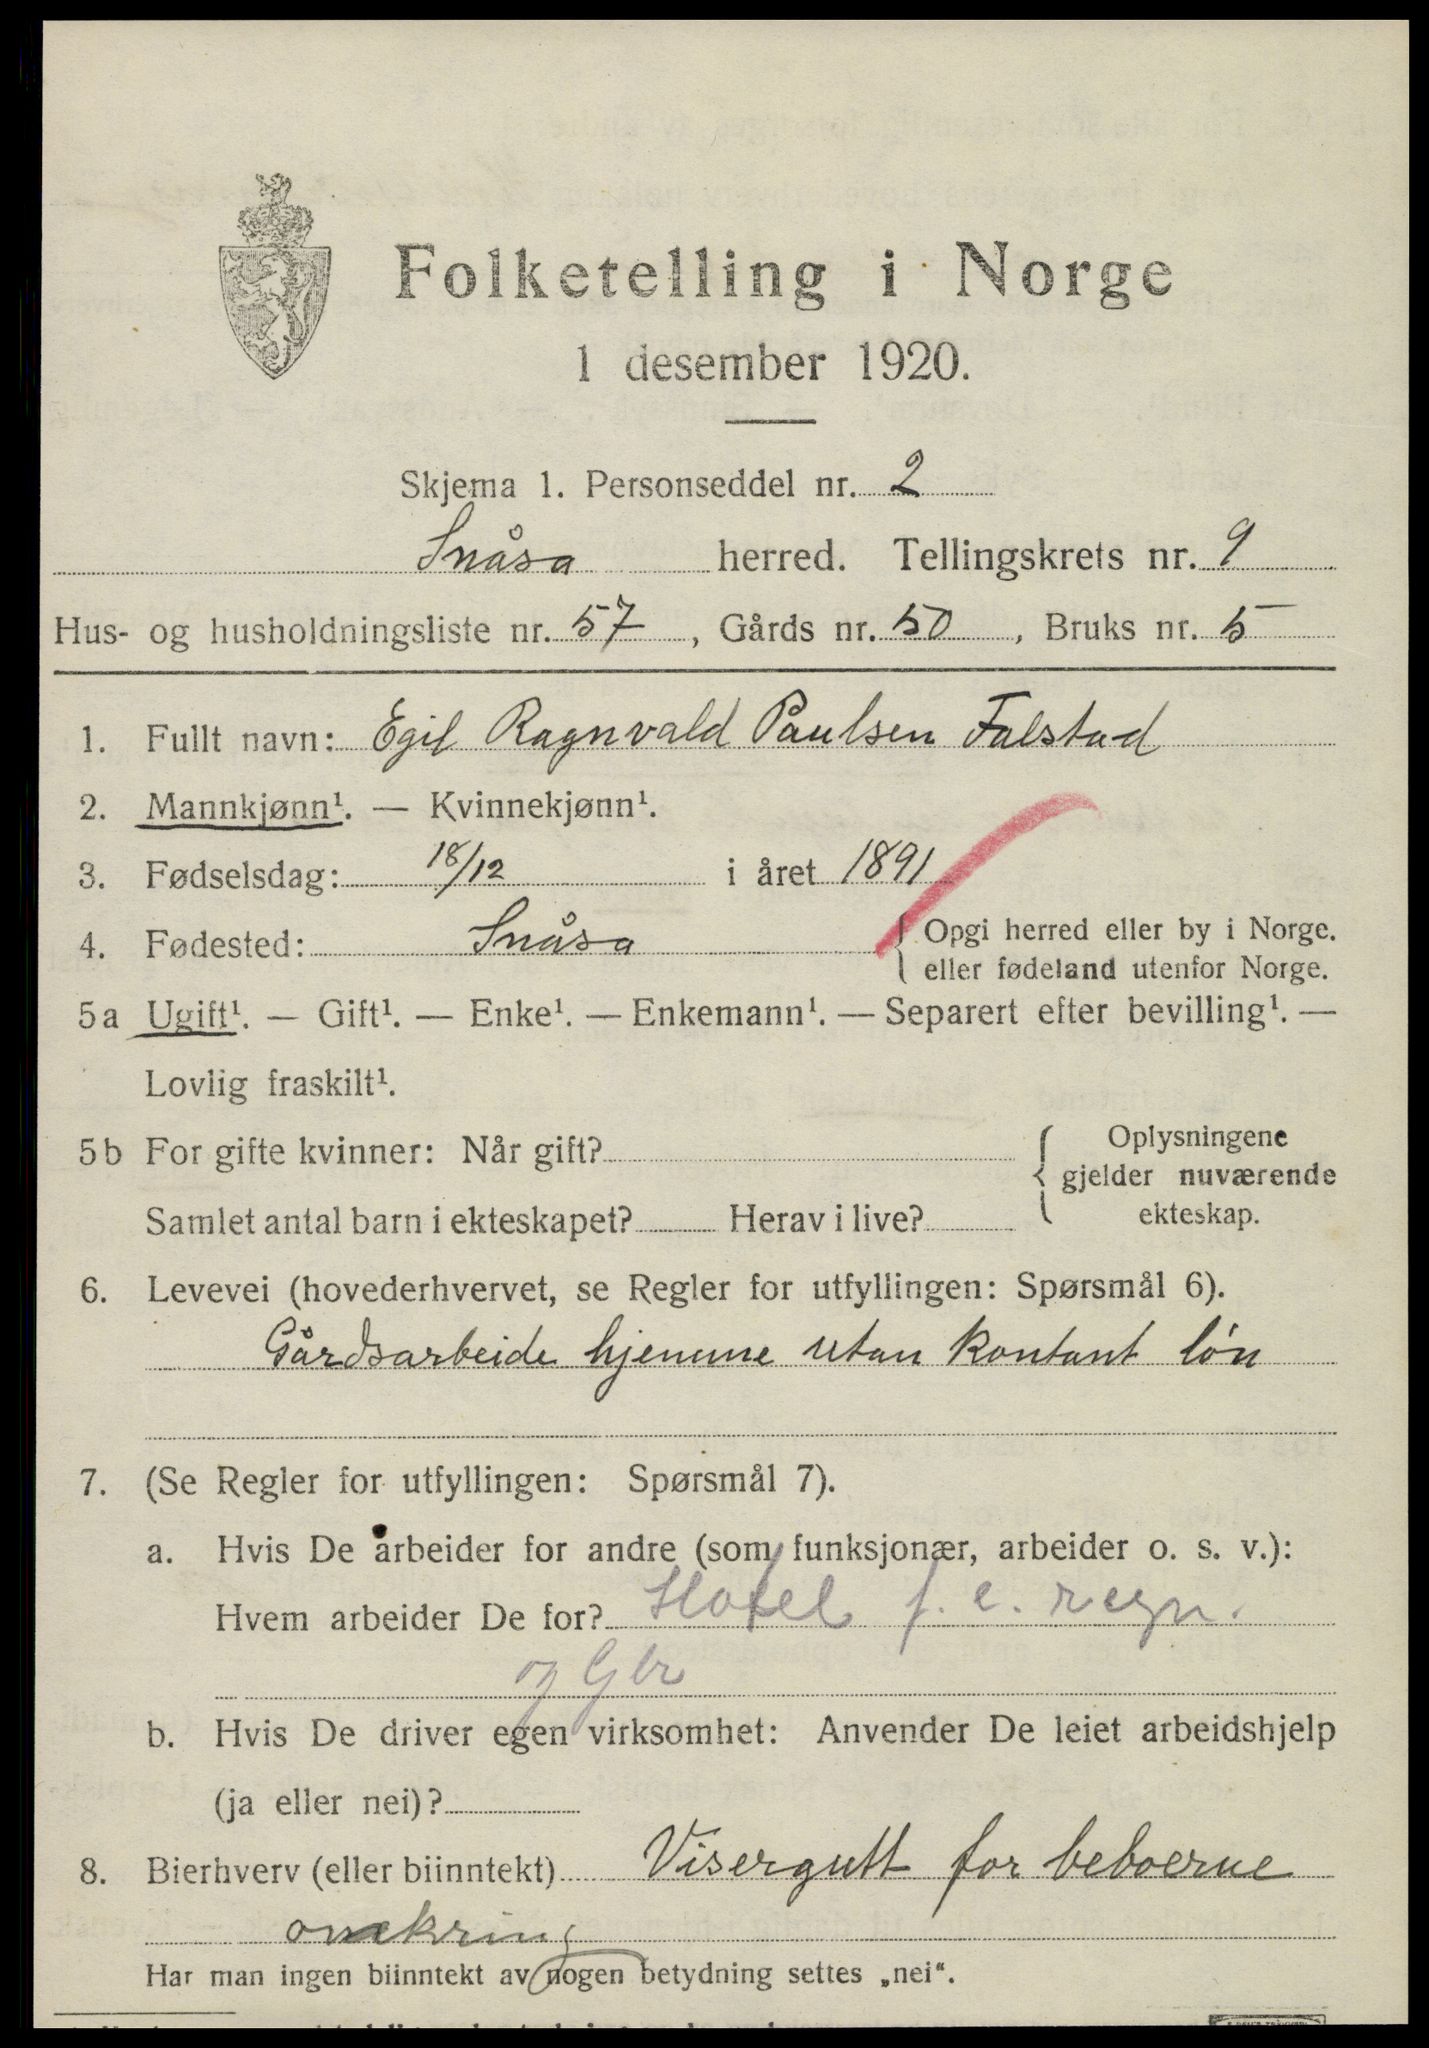 Folketelling i Norge
1 desember 1920.
Skjema 1. Personseddel nr. 2
Snåsa herred. Tellingskrets nr. 9
Hus- og husholdningsliste nr. 57, Gårds nr. 50, Bruks nr. 5
1. Fullt navn: Egil Ragnvald Paulsen Falstad
2. Mannkjønn¹. — Kvinnekjønn¹.
3. Fødselsdag: 18/12 i året 1891
4. Fødested: Snåsa { Opgi herred eller by i Norge.
eller fødeland utenfor Norge.
5a Ugift¹. — Gift¹. — Enke¹. — Enkemann¹. — Separert efter bevilling¹. —
Lovlig fraskilt¹.
5b For gifte kvinner: Når gift?
Samlet antal barn i ekteskapet? Herav i live?
Oplysningene
gjelder nuværende
ekteskap.
6. Levevei (hovederhvervet, se Regler for utfyllingen: Spørsmål 6).
Gårdsarbeide hjemme utan kontant løn
7. (Se Regler for utfyllingen: Spørsmål 7).
a. Hvis De arbeider for andre (som funksjonær, arbeider o. s. v.):
Hvem arbeider De for? Hotel f. e. regn.
og Gbr
b. Hvis De driver egen virksomhet: Anvender De leiet arbeidshjelp
(ja eller nei)?
8. Bierhverv (eller biinntekt) Visergutt for beboerne
omkring
Har man ingen biinntekt av nogen betydning settes „nei“.